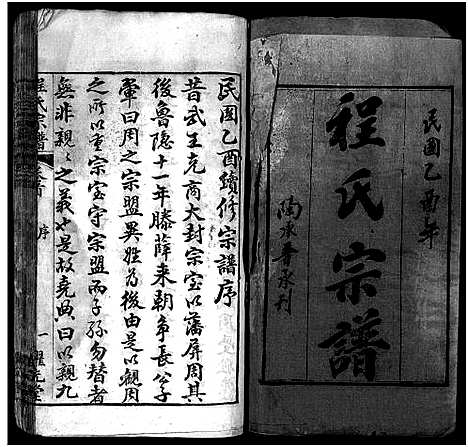 民國乙酉年
程氏宗譜
陶承考承刊
民國乙酉續修宗譜序
昔武王克商大封宗室以藩屏周其
後魯隐十一年滕薛来朝争長公子
翬曰周之宗盟異姓為後由是以觀周
之所以重宗室守宗盟而子孫勿替者
無非親〻之義也是故堯典曰以親九
程氏宗譜
序
一